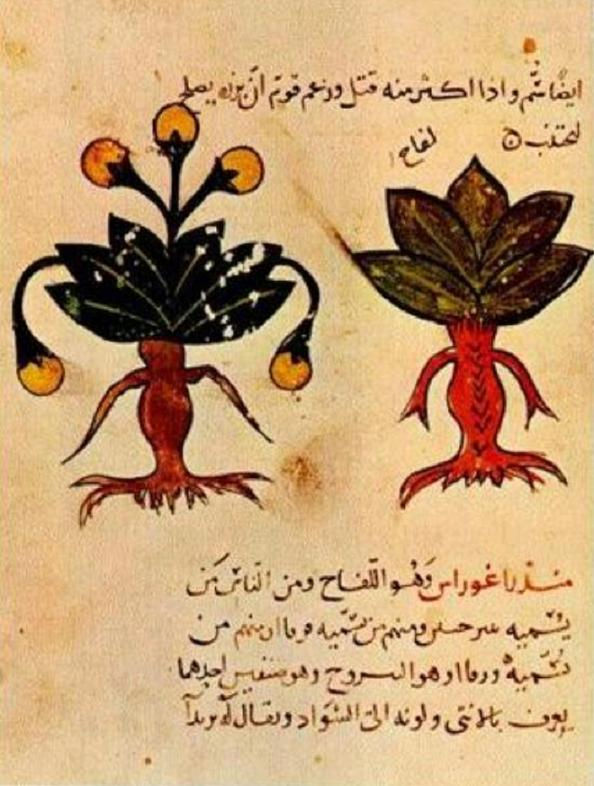 ايضًا سّم واذا اكثر منه قتل وزعم قوم انّ بزره يصلح
لفاح
مندراغوراس وهو اللّفاح ومن الناس من
يسّميه ومنهم من يسّميه
يسّميه وهو اليبروح وهو صنفين احدهما
يعرف بالانثى ولونه الى السّواد ويقال له